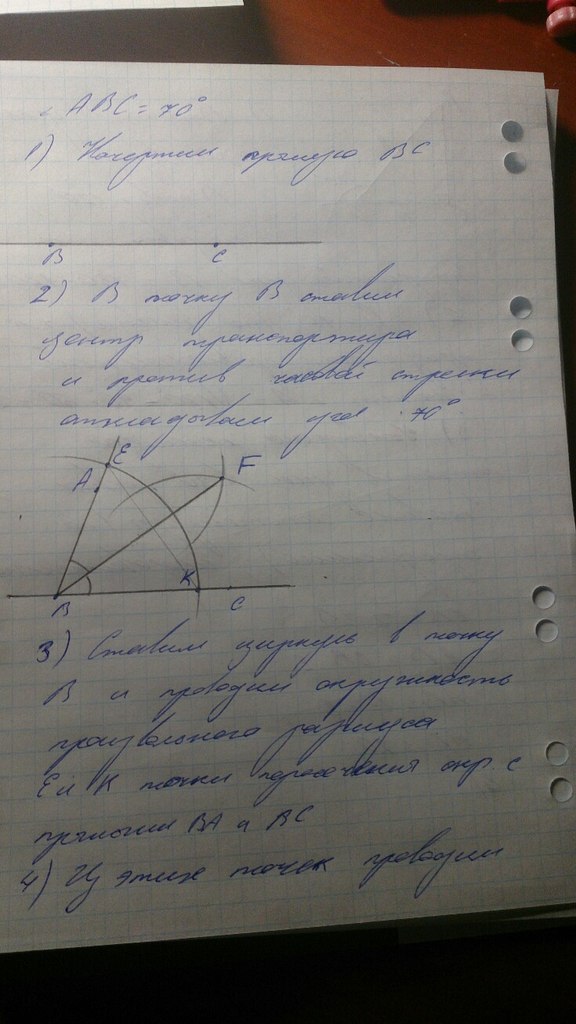 ∠ABC = 70°
1) Начертим прямую BC
B C
2) В точку B ставим
центр транспортира
и против часовой стрелки
откладываем угол 70°
E
A
F
K
B C
3) Ставим циркуль в точку
B и проводим окружность
произвольного радиуса
E и K точки пересечения окр с
прямыми BA и BC
4) Из этих точек проводим